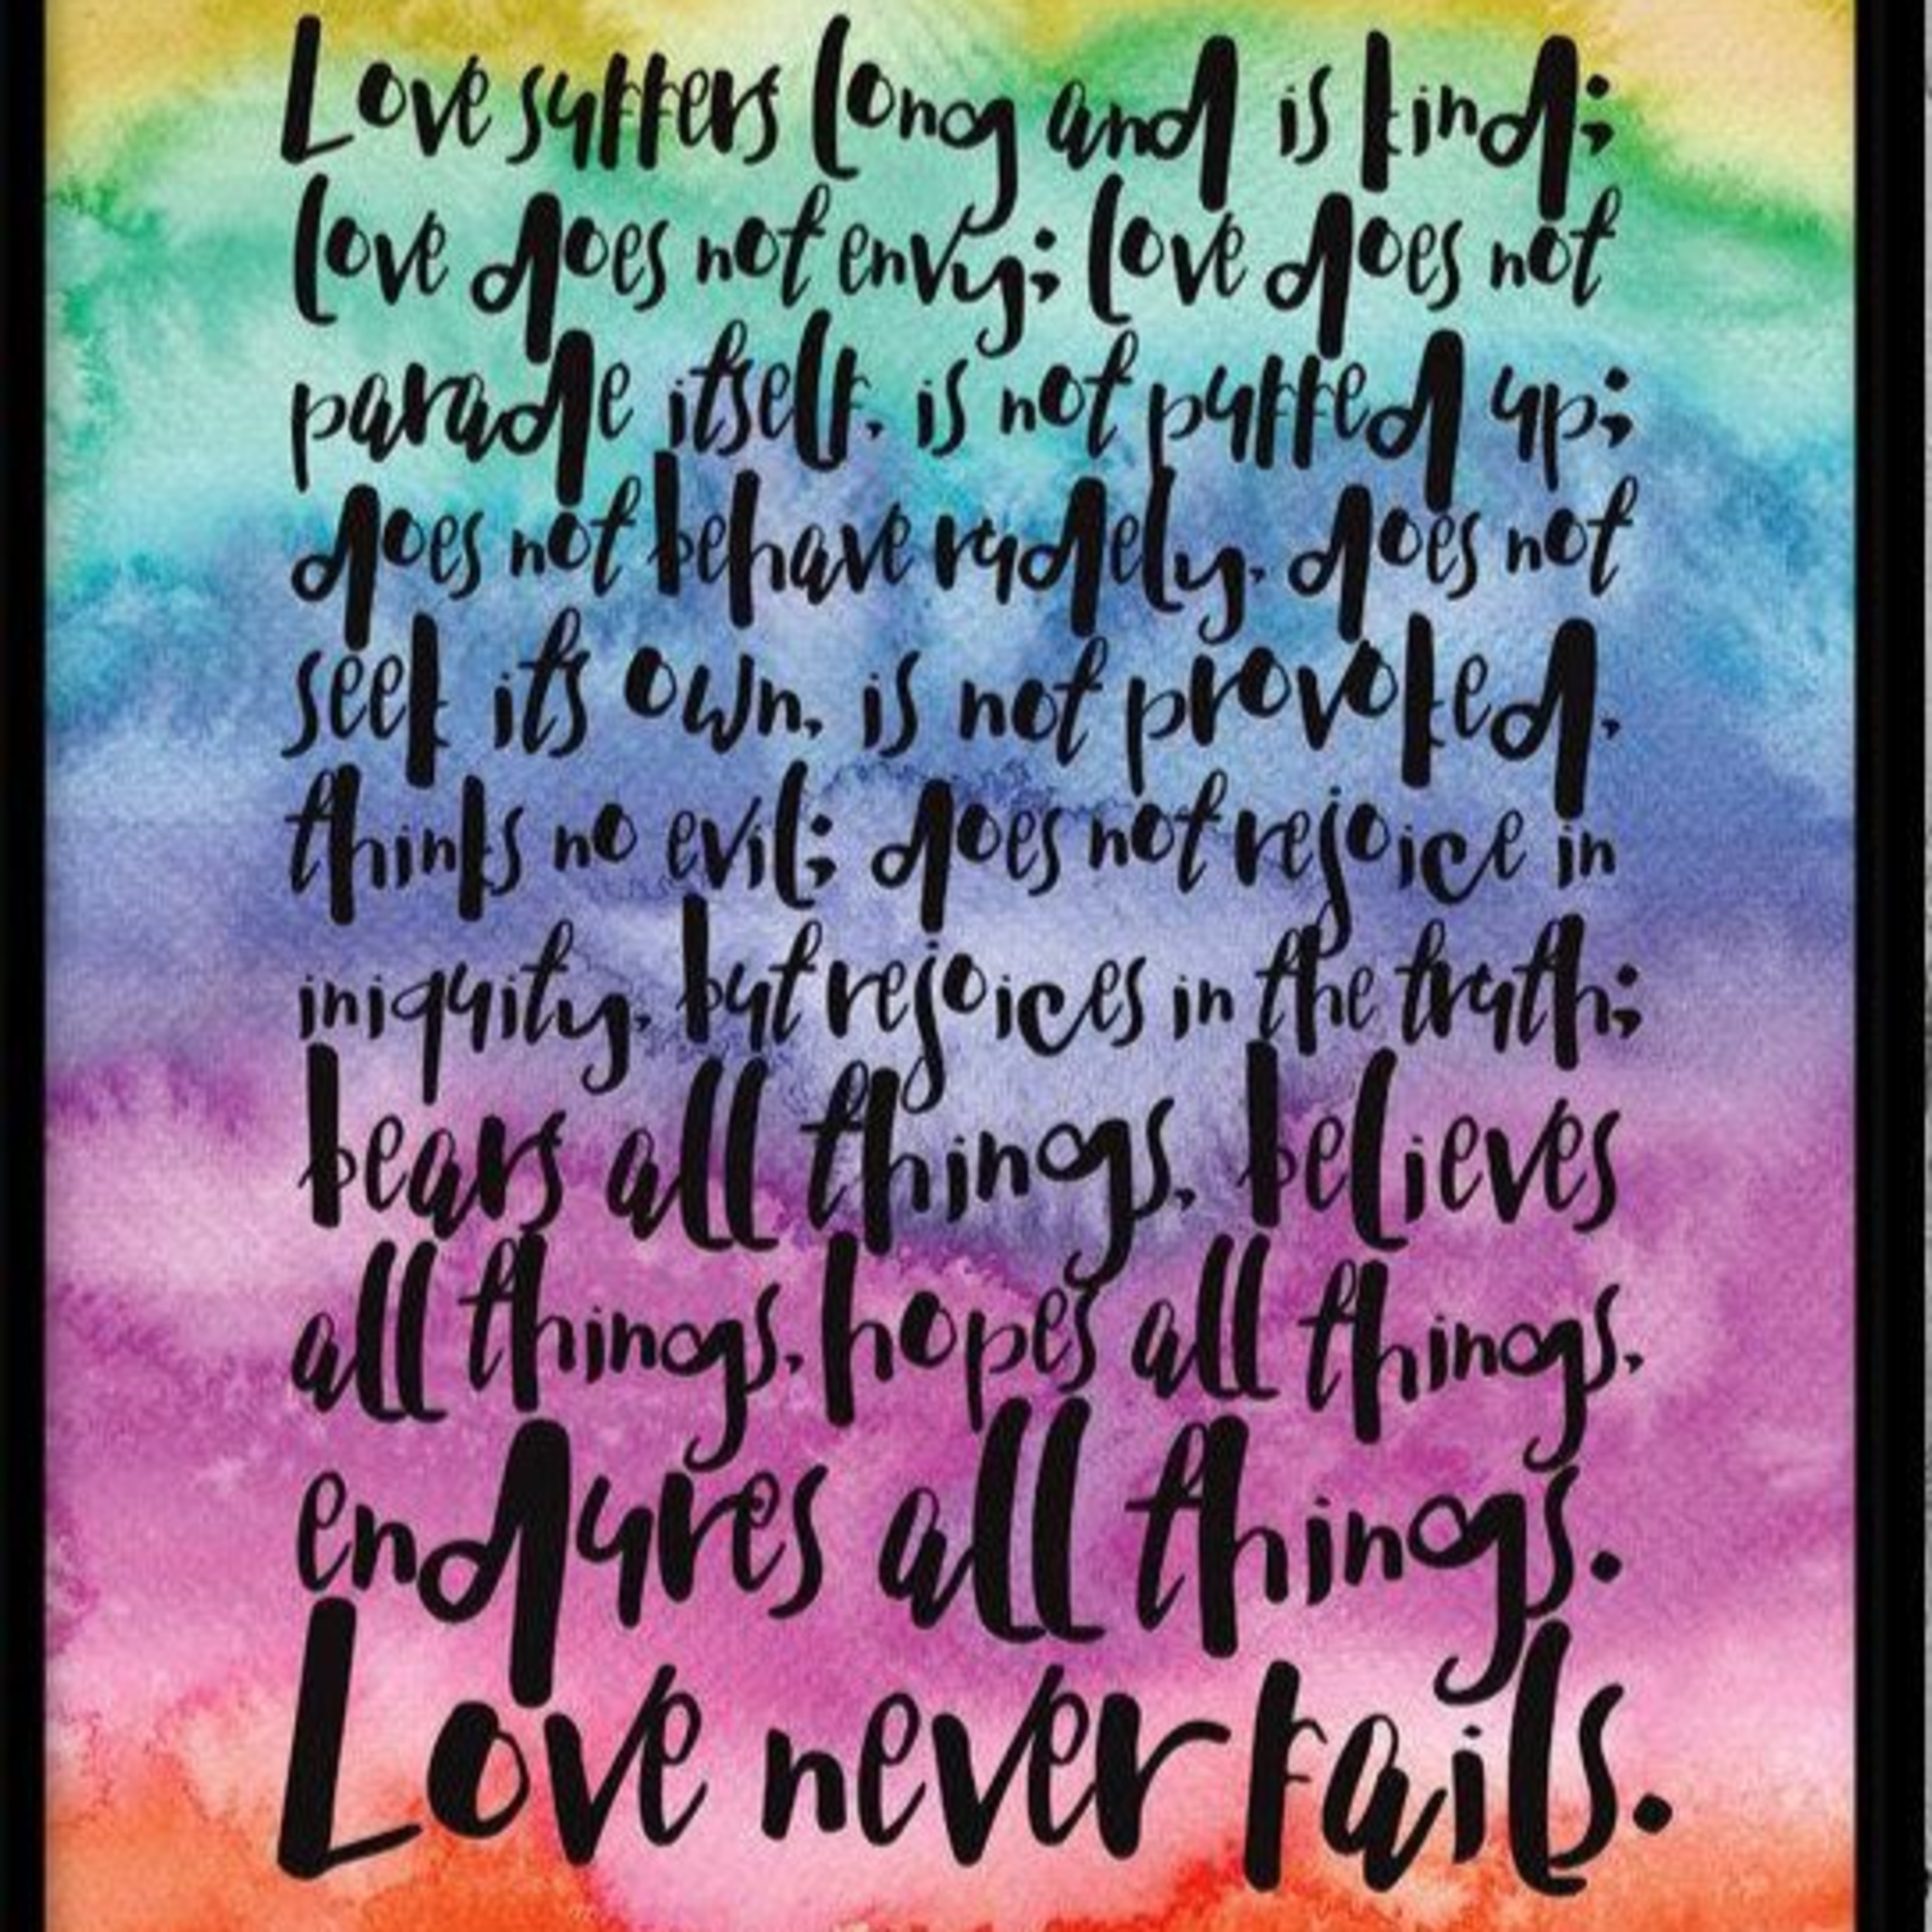 Love suffers long and is kind;
love does not envy; love does not
parade itself, is not puffed up;
does not behave rudely, does not
seek its own, is not provoked,
thinks no evil; does not rejoice in
iniquity, but rejoices in the truth;
bears all things, believes
all things, hopes all things,
endures all things.
Love never fails.